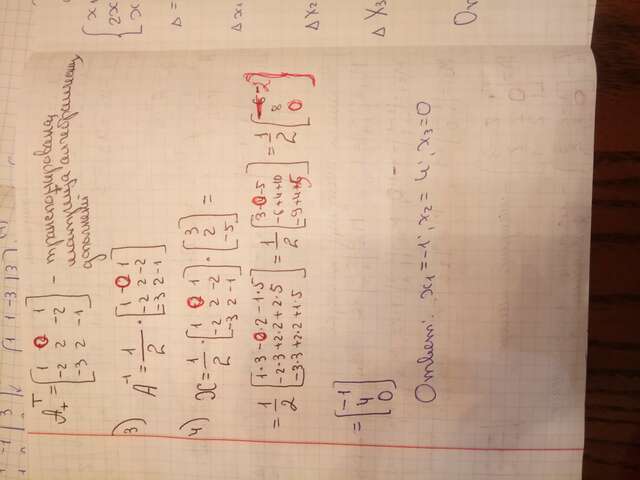 A₊ᵀ = [1 0 1
-2 2 -2
-3 2 -1] - транспонирована
матрица алгебраических
дополнений
3) A⁻¹ = 1/2 · [1 -0 1
-2 2 -2
-3 2 -1]
4) X = 1/2 · [1 0 1
-2 2 -2
-3 2 -1] · [3
2
-5] =
= 1/2 [1·3-0·2-1·5
-2·3+2·2+2·5
-3·3+2·2+1·5] = 1/2 [3-0-5
-6+4+10
-9+4+5] = 1/2 [-2
8
0]
= [-1
4
0]
Ответ: x₁=-1; x₂= 4; x₃=0
Δ =
Δx₁
Δx₂
Δx₃